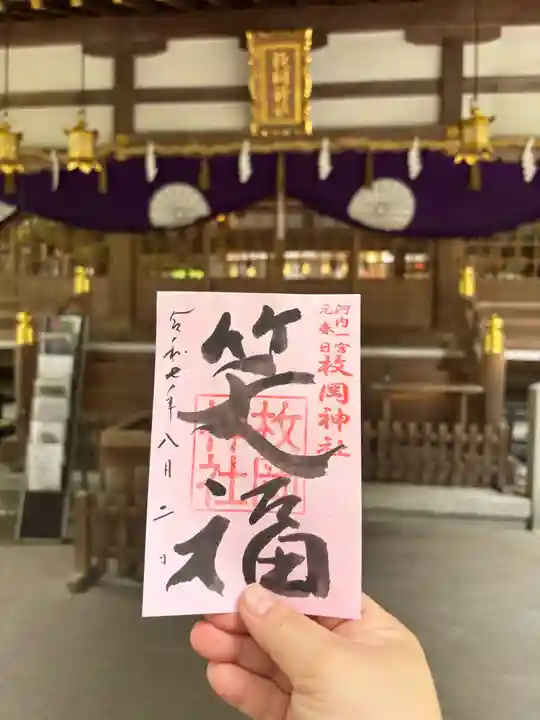 枚岡神社
河内一宮
元春日
枚岡神社
笑福
枚岡神社
令和七年八月二日